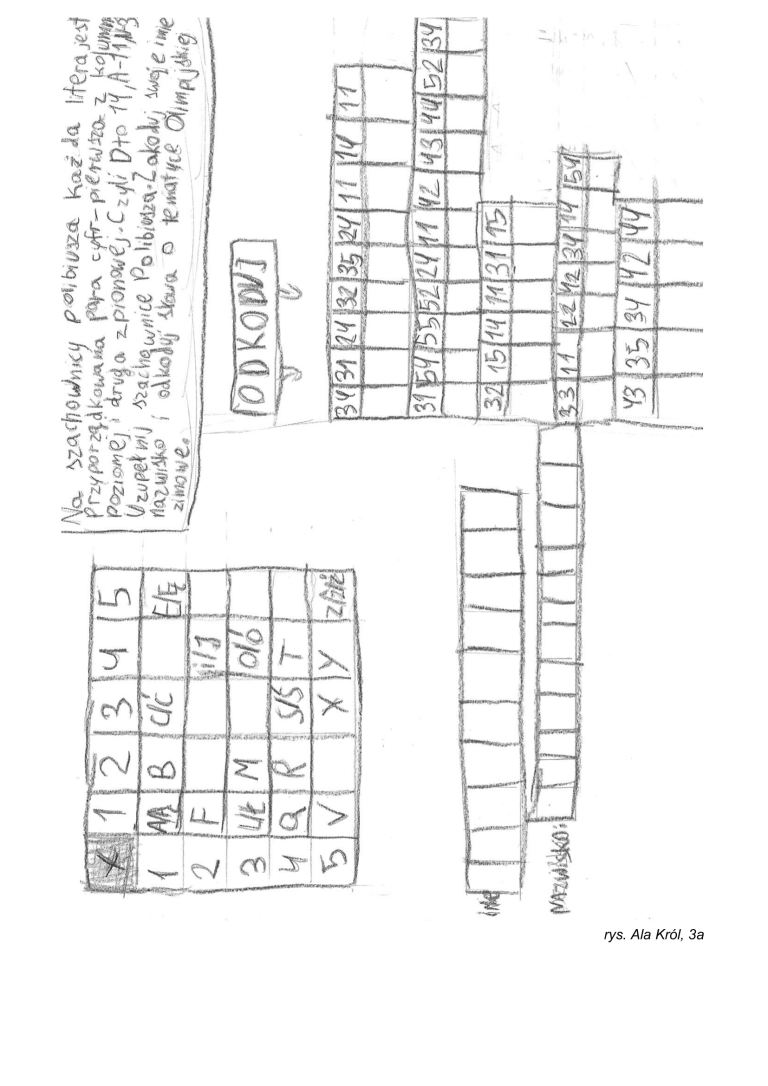 Na szachownicy polibiusza każda litera jest
przyporządkowana para cyfr - pierwsza z kolumn
poziomej i druga z pionowej. Czyli D to 14, A-11
Uzupełnij szachownice Polibiusza. Zakoduj swoje imie
nazwisko i odkoduj słowa o tematyce Olimpijskiej
zimowe.
X 1 2 3 4 5
1 A/Ą B C/Ć E/Ę
2 F i/J
3 L/Ł M O/Ó
4 Q R S/Ś T
5 V X Y Z/Ź/Ż
ODKODUJ
34 31 24 32 35 24 11 14 11
31 54 55 52 24 11 42 43 44 52 34
32 15 14 11 31 15
33 11 22 42 34 14 54
43 35 34 42 44
imię
NAZWISKO:
rys. Ala Król, 3a